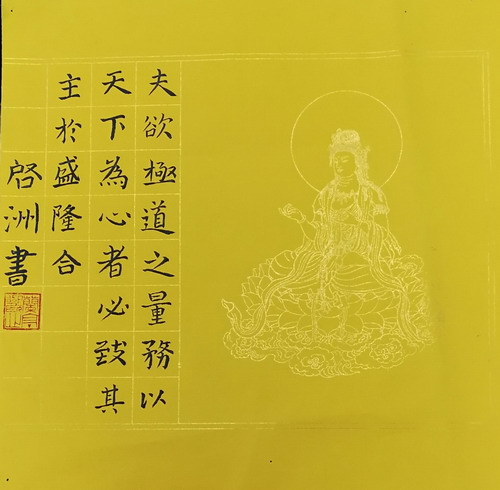 夫欲極道之量務以
天下為心者必致其
主於盛隆合
啓洲書